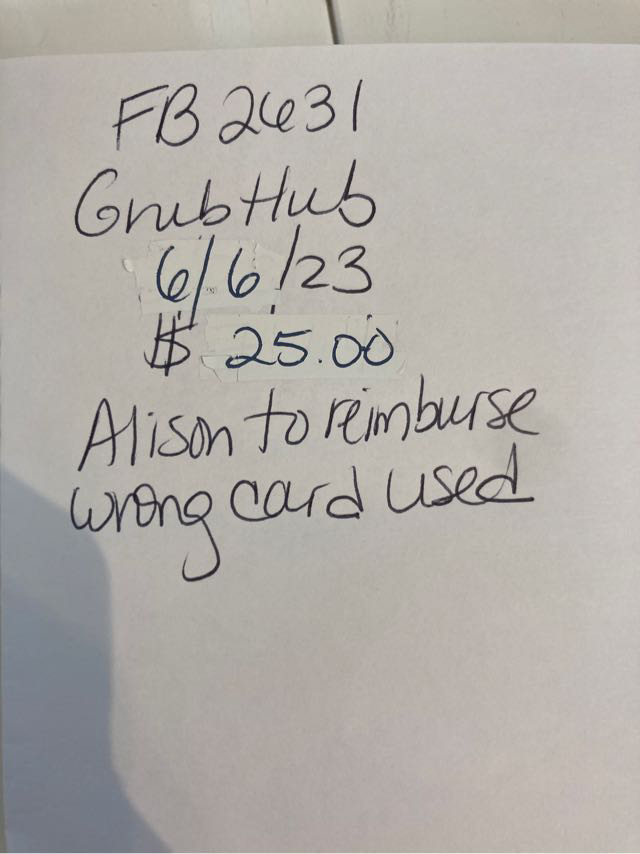 FB 2631
GrubHub
6/6/23
$ 25.00
Alison to reimburse
wrong card used